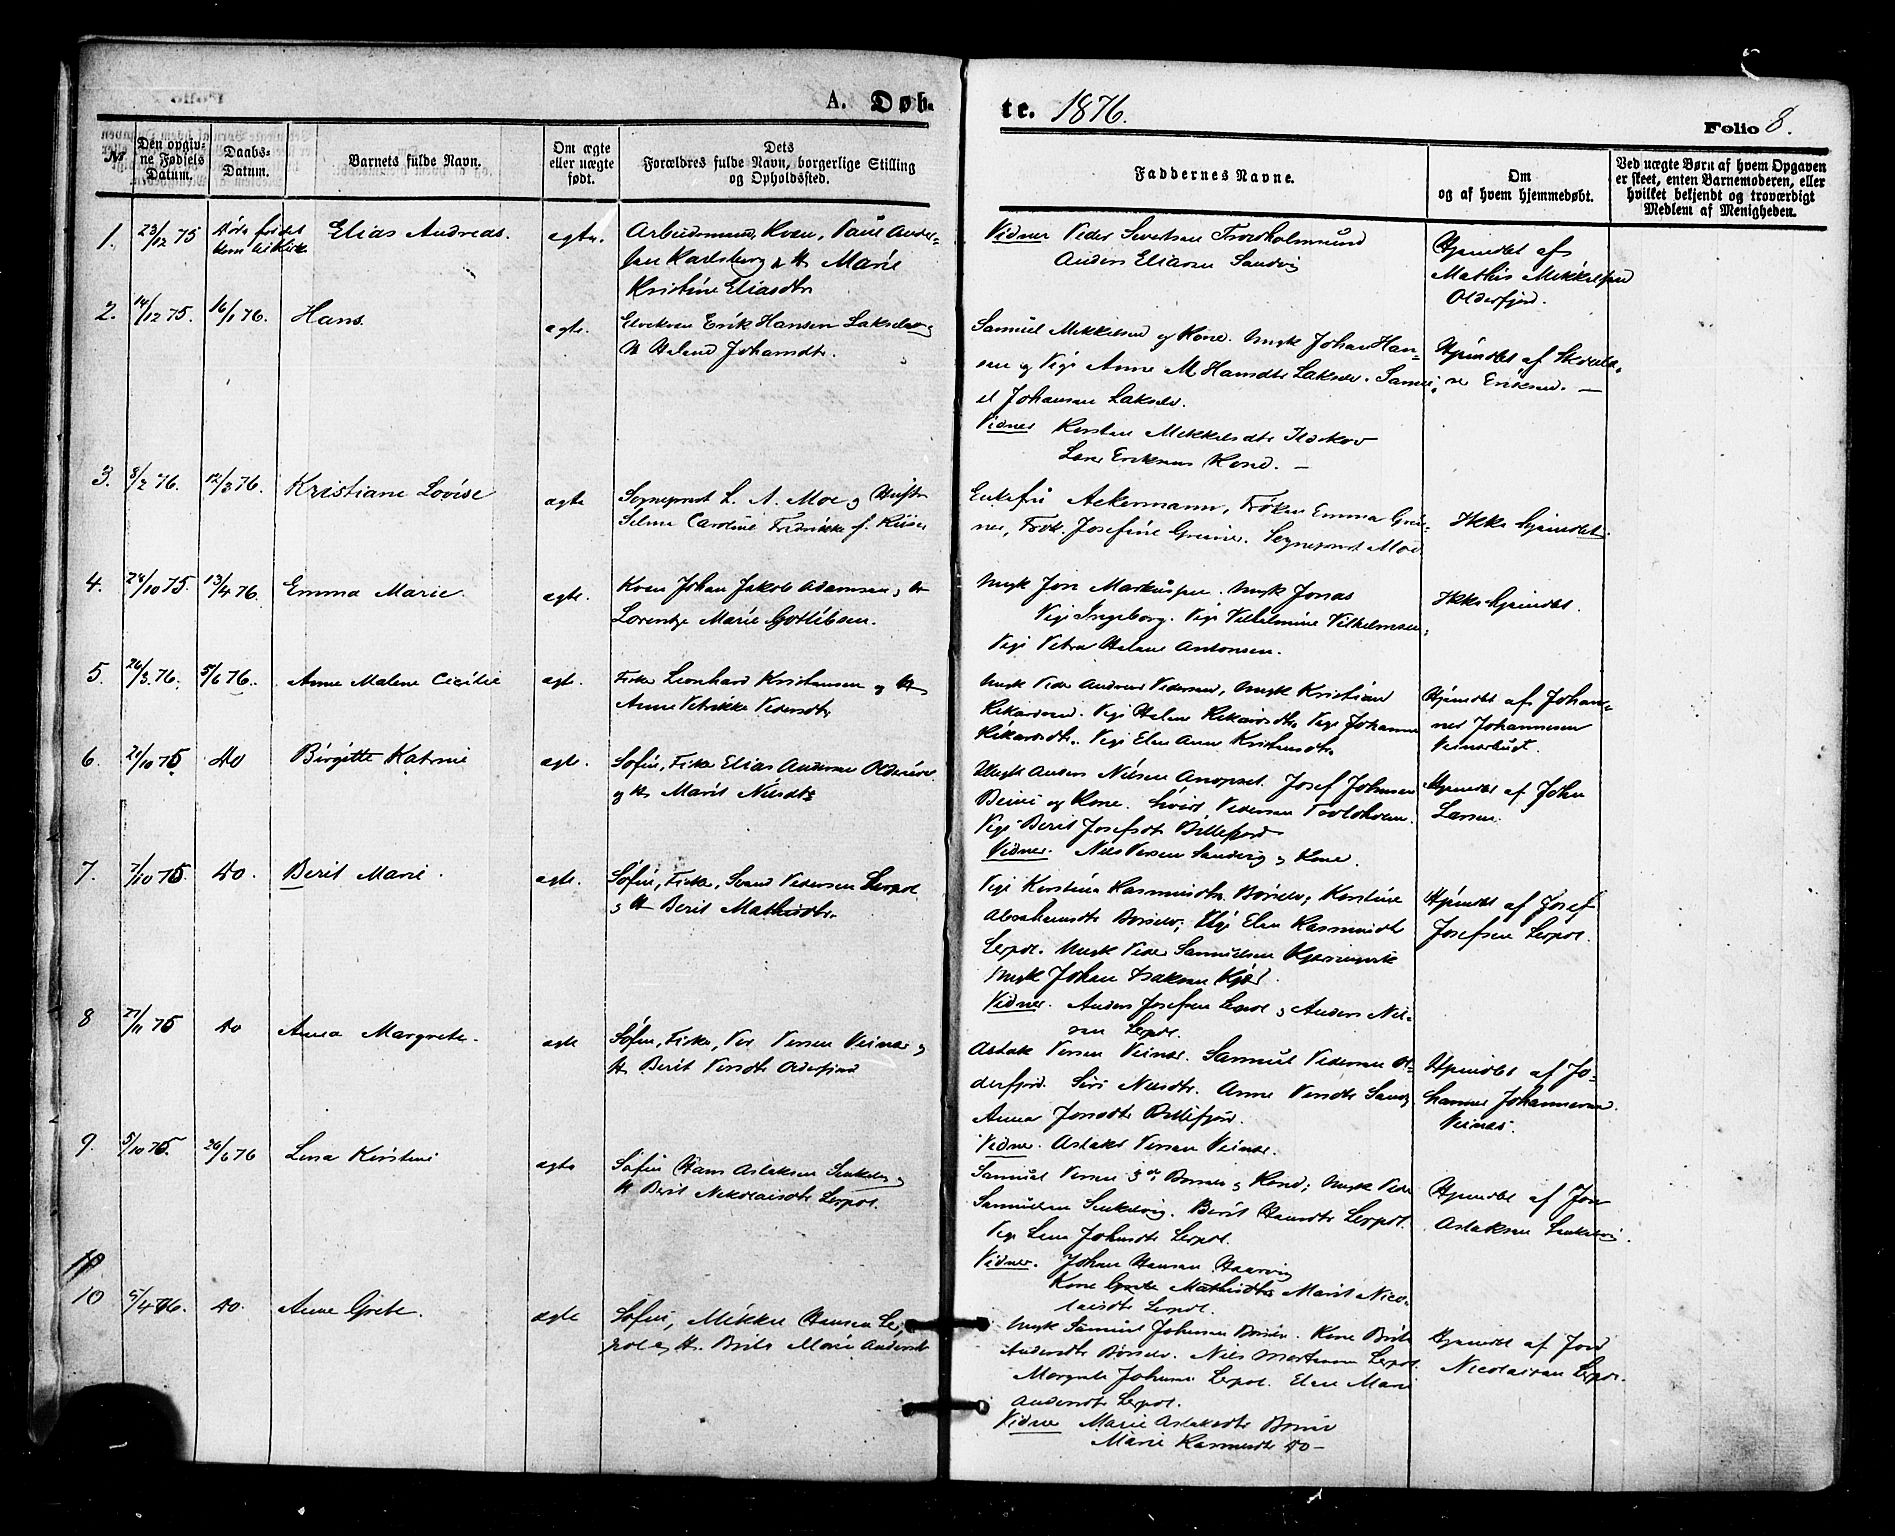 A. Døb-
te. 1876.
Folio 8.
No
Den opgiv-
ne Fødsels
Datum.
Daabs-
Datum.
Barnets fulde Navn.
Om ægte
eller uægte
født.
Dets
Forældres fulde Navn, borgerlige Stilling
og Opholdssted.
Faddernes Navne.
Om
og af hvem hjemmedøbt.
Ved uægte Børn af hvem Opgaven
er skeet, enten Barnemoderen, eller
hvilket bekjendt og troværdigt
Medlem af Menigheden.
1. 23/12 75
Elias Andreas.
ægte.
Arbeidsmand, Kvæn, Paul Ander-
sen Karlsberg & H Marie
Kristine Eliasdtr
Vidner Peder Sivertsen
Anders Eliasen Sandvig
Hjemdbt af
Mathis Mikkelsen
Olderfjord.
2. 14/12 75. 16/1 76. Hans.
ægte.
Erik Hansen Lakselv og
H Helene Johansdtr.
Samuel Mikkelsen og Kone. Ungk Johan Han-
sen og Pige Anne M Hansdtr Lakselv. Samu-
el Johansen Lakselv.
Vidner Kirsten Mikkelsdtr
Lars Eriksens Kone. —
Hjemdbt af
Eriksen. —
3. 8/2 76. 12/3 76. Kristiane Lovise
ægte
Sogneprest L. A. Moe og Hustr
Selma Caroline Fredrikke f. Kiær
Enkefru Ackermann, Frøken Emma Grei-
ner, Frøk. Josefine Greiner. Sogneprest Moe.
Ikke hjemdbt.
4. 24/10 75. 13/4 76. Emma Marie.
ægte.
Kvæn Johan Jakob Adamsen, &
Lorentze Marie Gotlibsen.
Ungk Jon Markussen. Ungk Jonas
Pige Ingeborg. Pige Vilhelmine Vilhelmsen.
Pige Petra Helene Antonsen.
Ikke hjemdbt.
5. 26/3 76. 5/6 76. Anne Malene Cecilie
ægte.
Fisker Leonhard Kristiansen og H
Anne Petrikke Pedersdtr
Ungk Peder Andreas Pedersen, Ungk Kristian
Rikardsen. Pige Helene Rikardsdtr. Pige Johanne
Rikardsdtr. Pige Elen Anne Kristiansdtr
Hjemdbt af Johan-
nes Johannesen
6. 21/10 75 do Birgitte Katrine
ægte.
Søfin, Fisker Elias Andersen
og H. Marit Nilsdtr
Ungk Anders Nilsen Anopset. Josef Johnsen
og Kone. Pedersen
Pige Berit Josefsdtr Billefjord
Vidner. Nils Persen Sandvig og Kone.
Hjemdbt af John
Larsen.
7. 7/10 75 do. Berit Marie.
ægte.
Søfin, Fisker, Svend Pedersen Lerpol
og H Berit Mathisdtr.
Pige Kirstine Rasmusdtr Børselv, Kirstine
Abrahamsdtr Børselv, Pige Elen Rasmusdtr
Lerpol. Ungk Peder Samuelsen
Ungk Johan Isaksen
Vidner. Anders Josefsen Lerpol og Anders Nil-
sen Lerpol.
Hjemdbt af Josef
Josefsen Lerpol.
8 27/11 75 do Anna Margrete.
ægte
Søfin, Fisker, Per Persen Veines og
H Berit Persdtr Olderfjord
Aslak Persen Veines. Samuel Pedersen Ol-
derfjord. Siri Nilsdtr. Anne Persdtr
Anna Jonsdtr Billefjord.
Vidner. Aslak Persen Veines.
Hjemdbt af Jo-
hannes Johannesen
Veines.
9. 5/10 75. 26/6 76 Lena Kirstine
ægte
Søfin Hans Aslaksen
H Berit Nikolaisdtr Lerpol.
Samuel Persen og Kone; Ungk Peder
Samuelsen. Berit Hansdtr Lerpol.
Pige Lena Johnsdtr Lerpol.
Vidner. Johan Hansen
Kone Grete Mathisdtr Marit Nico-
laisdtr Lerpol.
Hjemdbt af Jon
Aslaksen
10 5/4 76. do. Anne Grete.
ægte
Søfin, Mikkel Hansen Ler-
pol og H. Brita Marie Andersdtr
Ungk Samuel Johansen Børselv. Kone Brita
Andersdtr Børselv. Nils Mortensen Lerpol.
Margrete Johnsen Lerpol. Elen Marie
Andersdtr Lerpol.
Vidner Marie Aslaksdtr
Marie Rasmusdtr do —
Hjemdbt af Jon
Nicolaisen Lerpol.